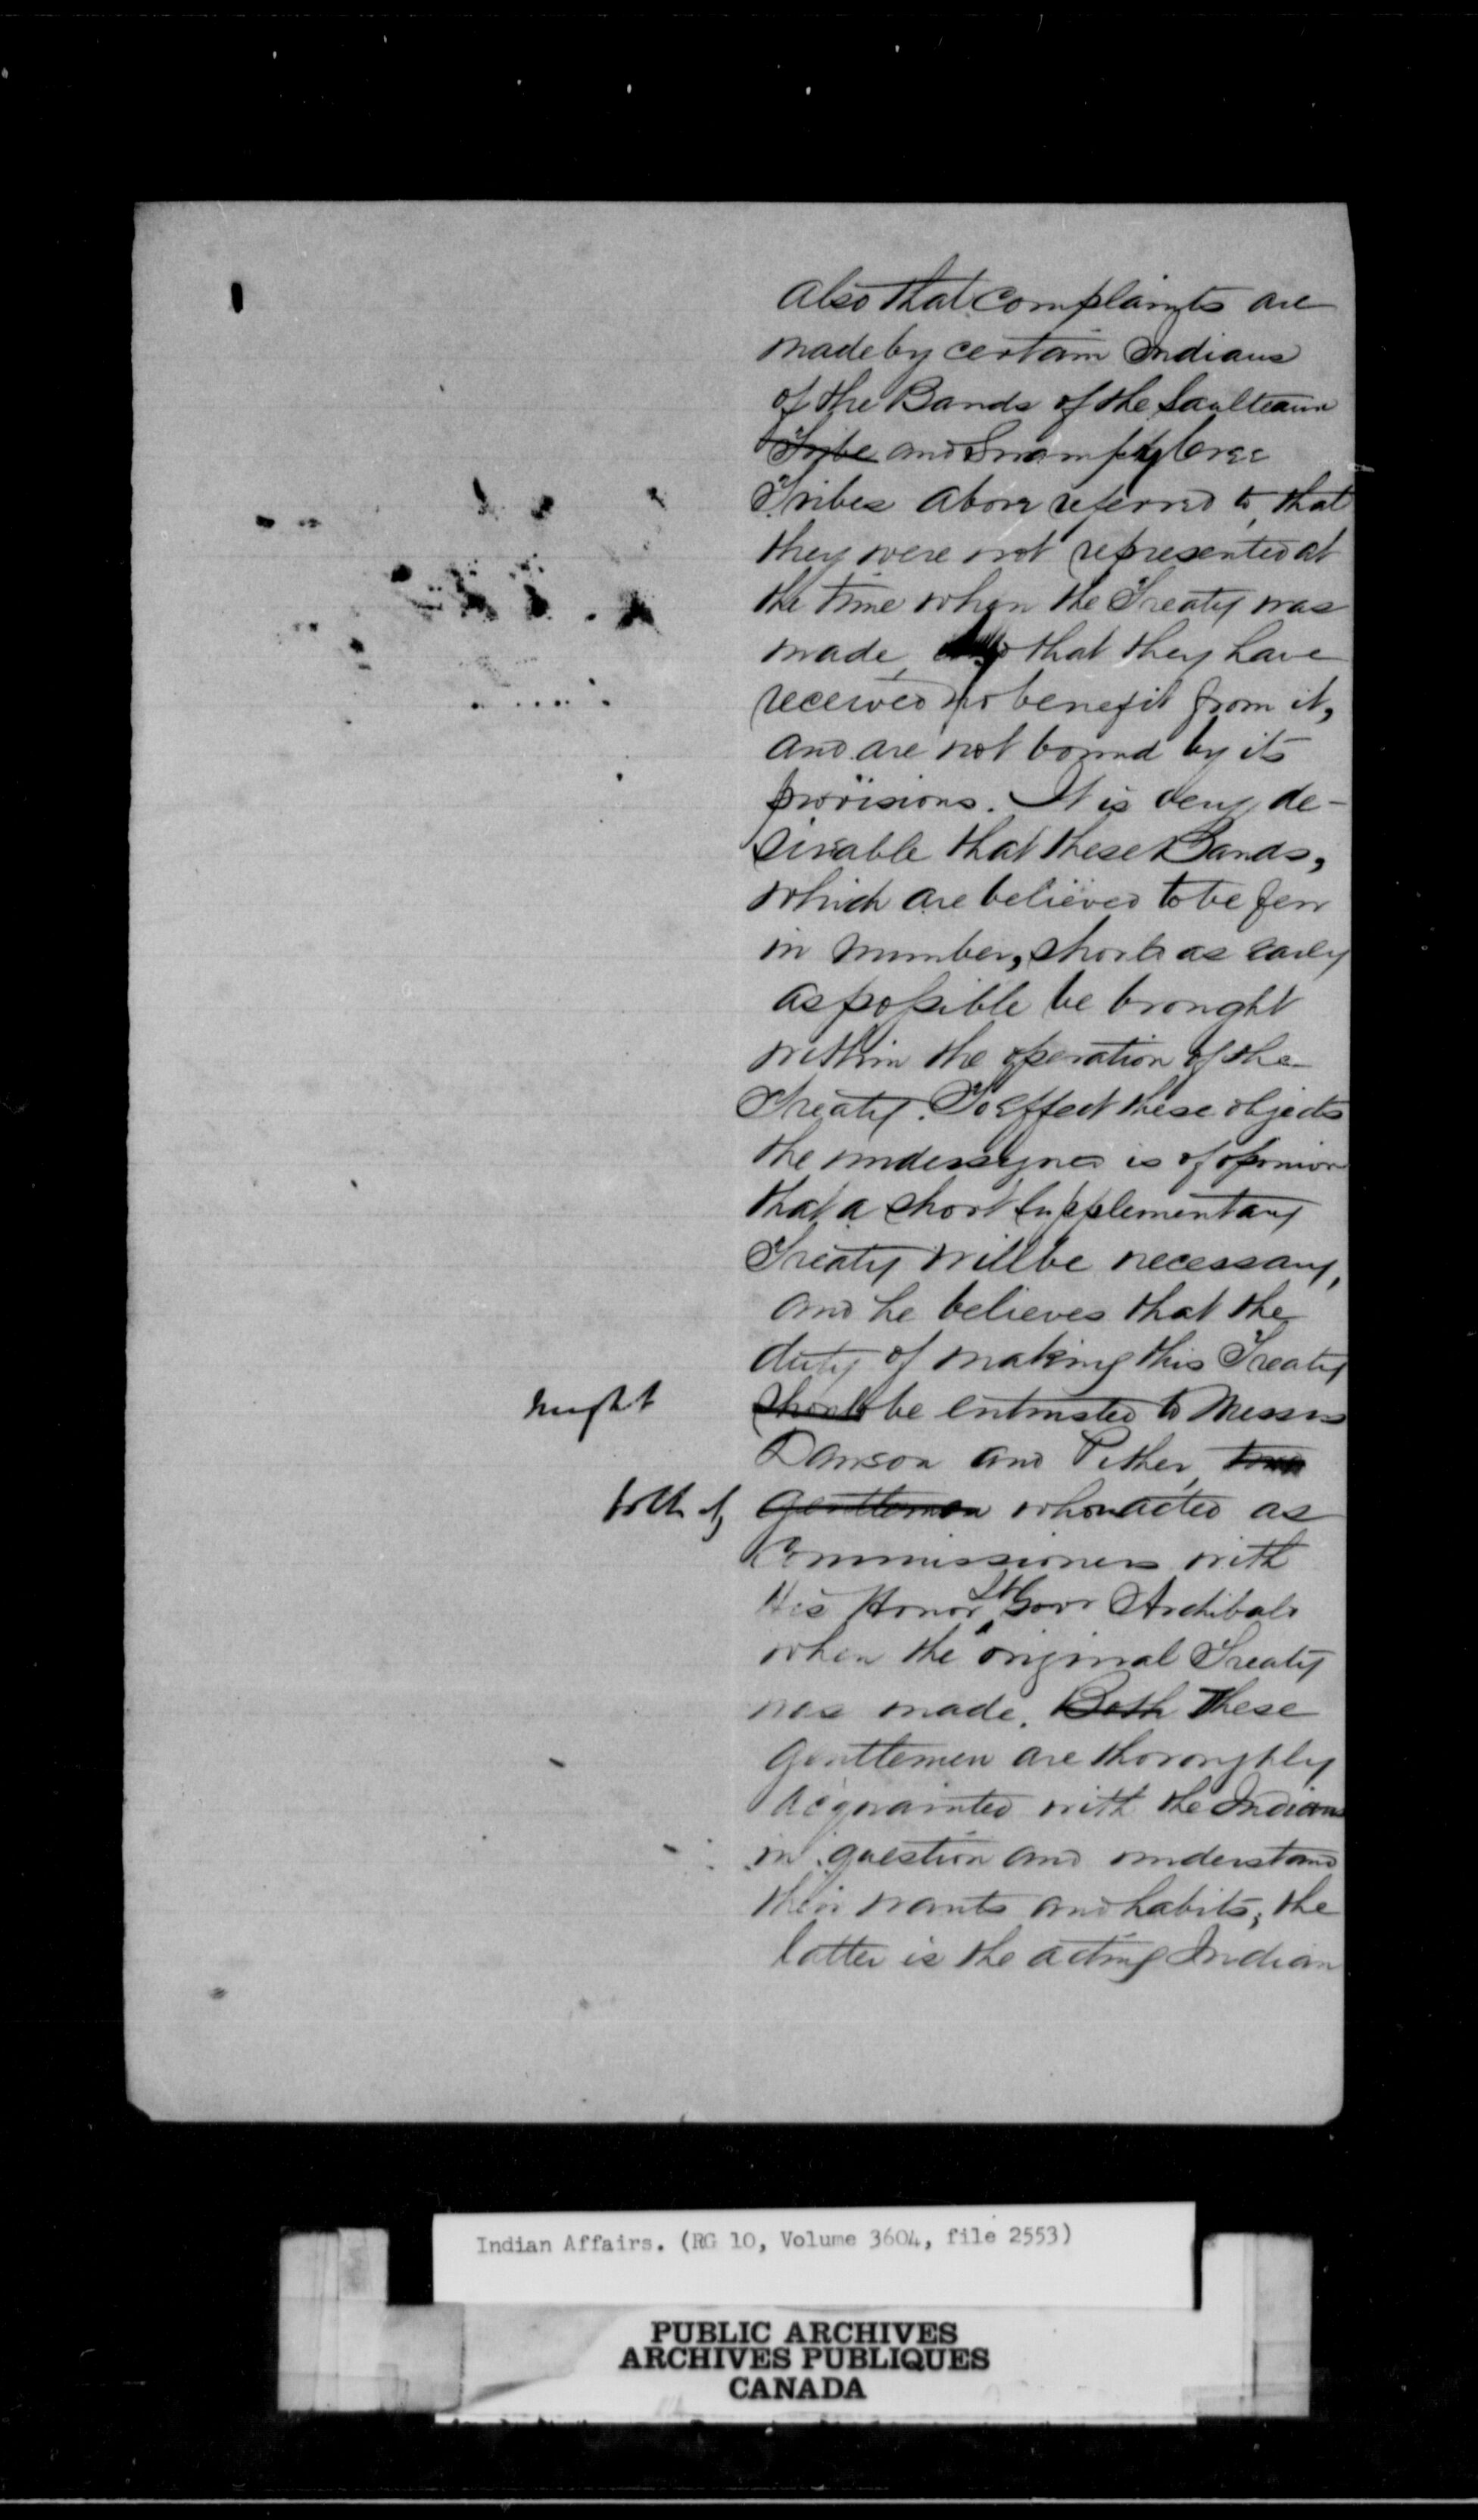 also that complaints are
made by certain Indians
of the Bands of the Saulteaux
Tribe and Swampy Cree
Tribes above referred to, that
they were not represented at
the time when the Treaty was
made, that they have
received no benefit from it,
and are not bound by its
provisions. It is very de-
sirable that these Bands,
which are believed to be few
in number, should as early
as possible be brought
within the operation of the
Treaty. To effect these objects
the undersigned is of opinion
that a short supplementary
Treaty will be necessary,
and he believes that the
duty of making this Treaty
might should be entrusted to Messrs
Dawson and Pether, two
both of gentlemen whom acted as
Commissioners with
His Honor Lt Govr Archibald
when the original Treaty
was made. Both These
gentlemen are thoroughly
acquainted with the Indians
in question and understand
their wants and habits; the
latter is the acting Indian
Indian Affairs. (RG 10, Volume 3604, file 2553)
PUBLIC ARCHIVES
ARCHIVES PUBLIQUES
CANADA